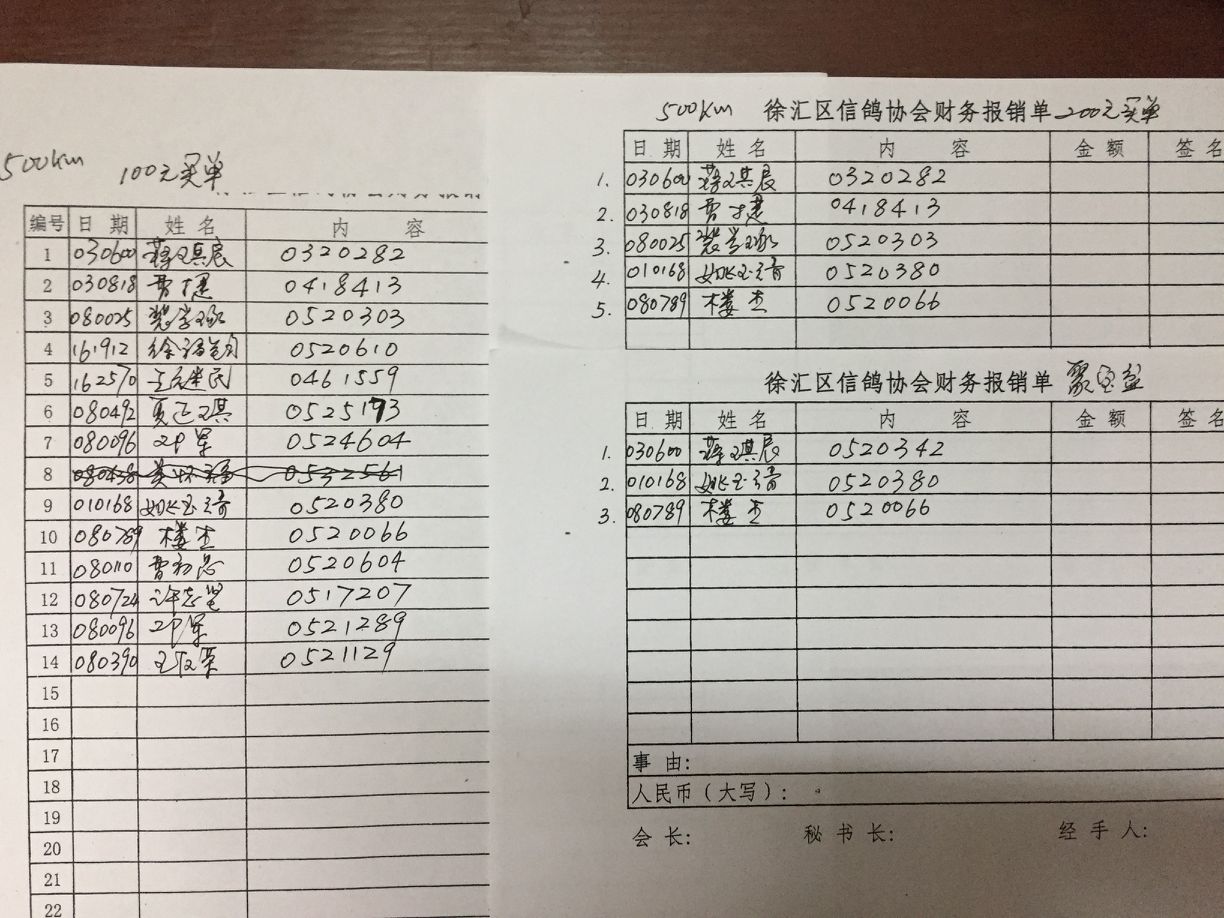 500km 100元买单
编号 日 期 姓 名 内 容
1 030600 蒋琪辰 0320282
2 030818 曹捷 0418413
3 080025 裴学 0520303
4 161912 徐 0520610
5 162570 王 民 0461559
6 080492 夏正琪 0525173
7 080096 军 0524604
8 080438 0532561
9 010168 姚玉清 0520380
10 080789 楼杰 0520066
11 080110 曹 0520604
12 080724 许志 0517207
13 080096 军 0521289
14 080390 王 荣 0521129
15
16
17
18
19
20
21
22
500km 徐汇区信鸽协会财务报销单 200元买单
日 期 姓 名 内 容 金 额 签 名
1. 030600 蒋琪辰 0320282
2. 030818 曹捷 0418413
3. 080025 裴学 0520303
4. 010168 姚玉清 0520380
5. 080789 楼杰 0520066
徐汇区信鸽协会财务报销单 聚宝盆
日 期 姓 名 内 容 金 额 签 名
1. 030600 蒋琪辰 0520342
2. 010168 姚玉清 0520380
3. 080789 楼杰 0520066
事 由:
人民币（大写）:
会 长: 秘 书 长: 经 手 人: